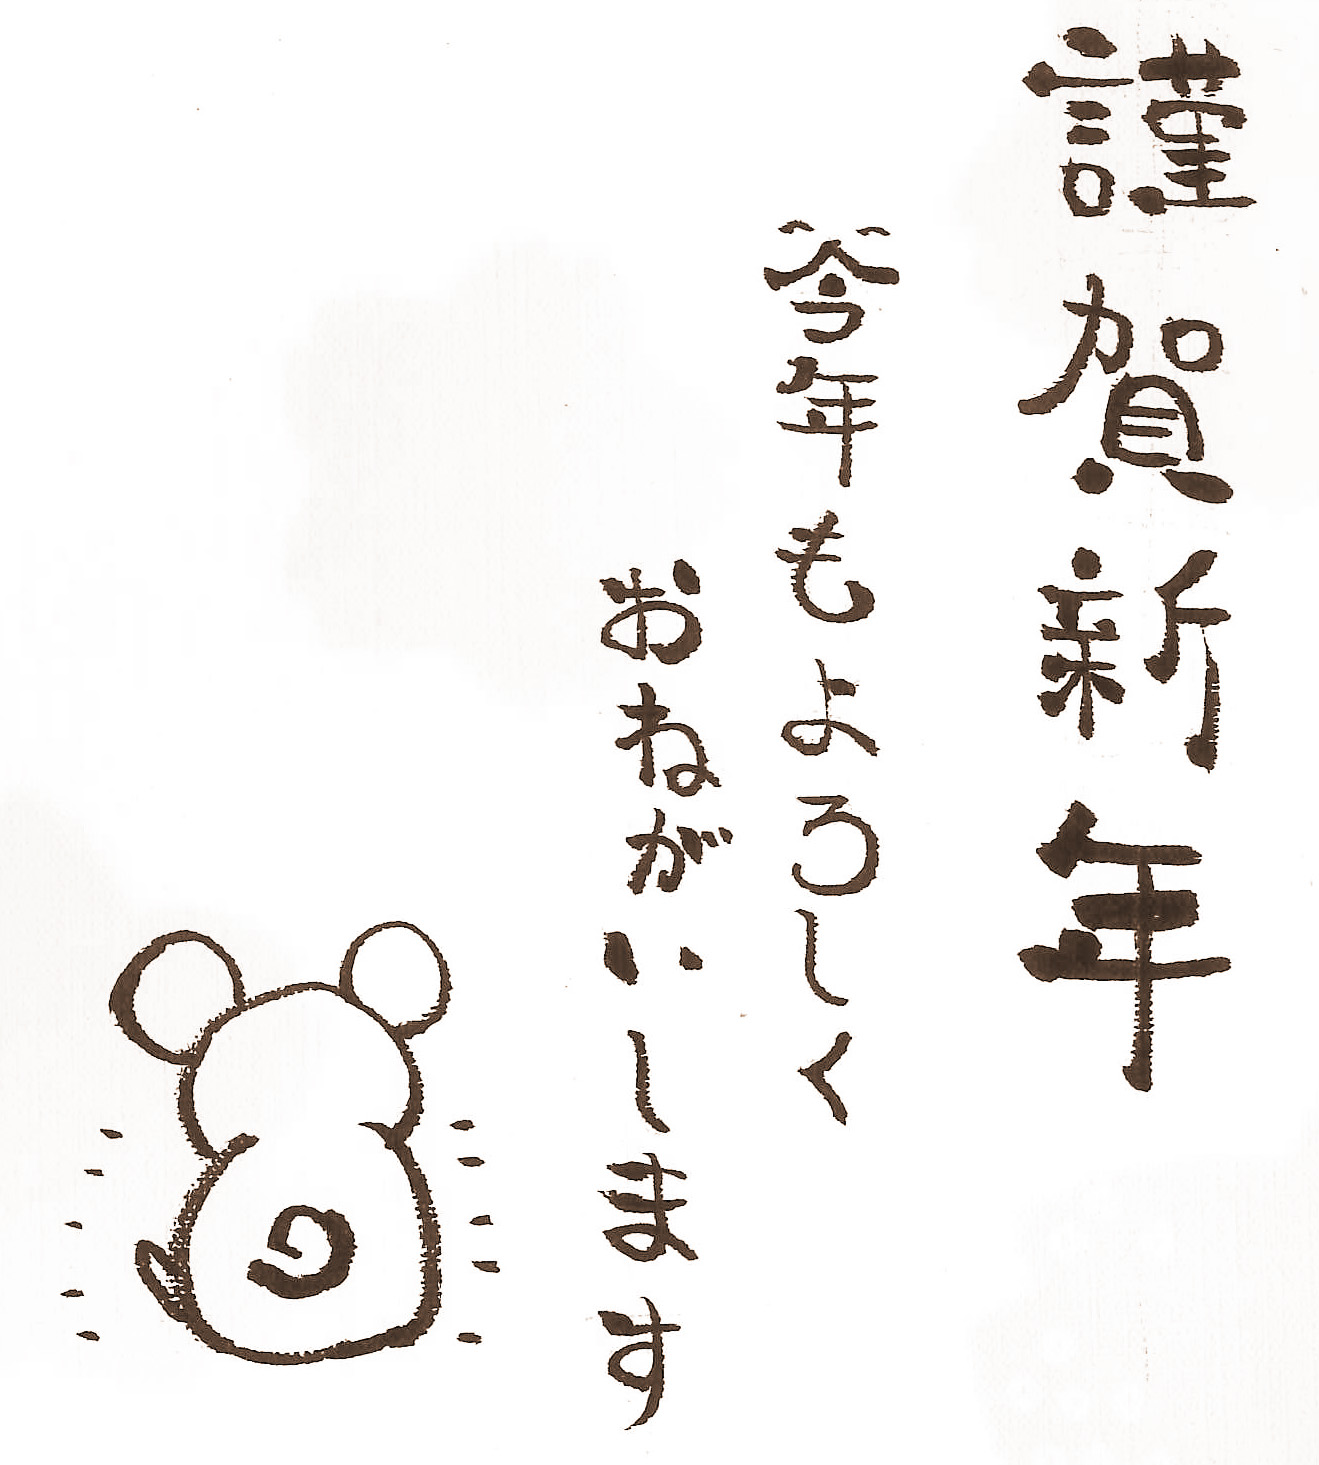 謹賀新年
今年もよろしく
おねがいします